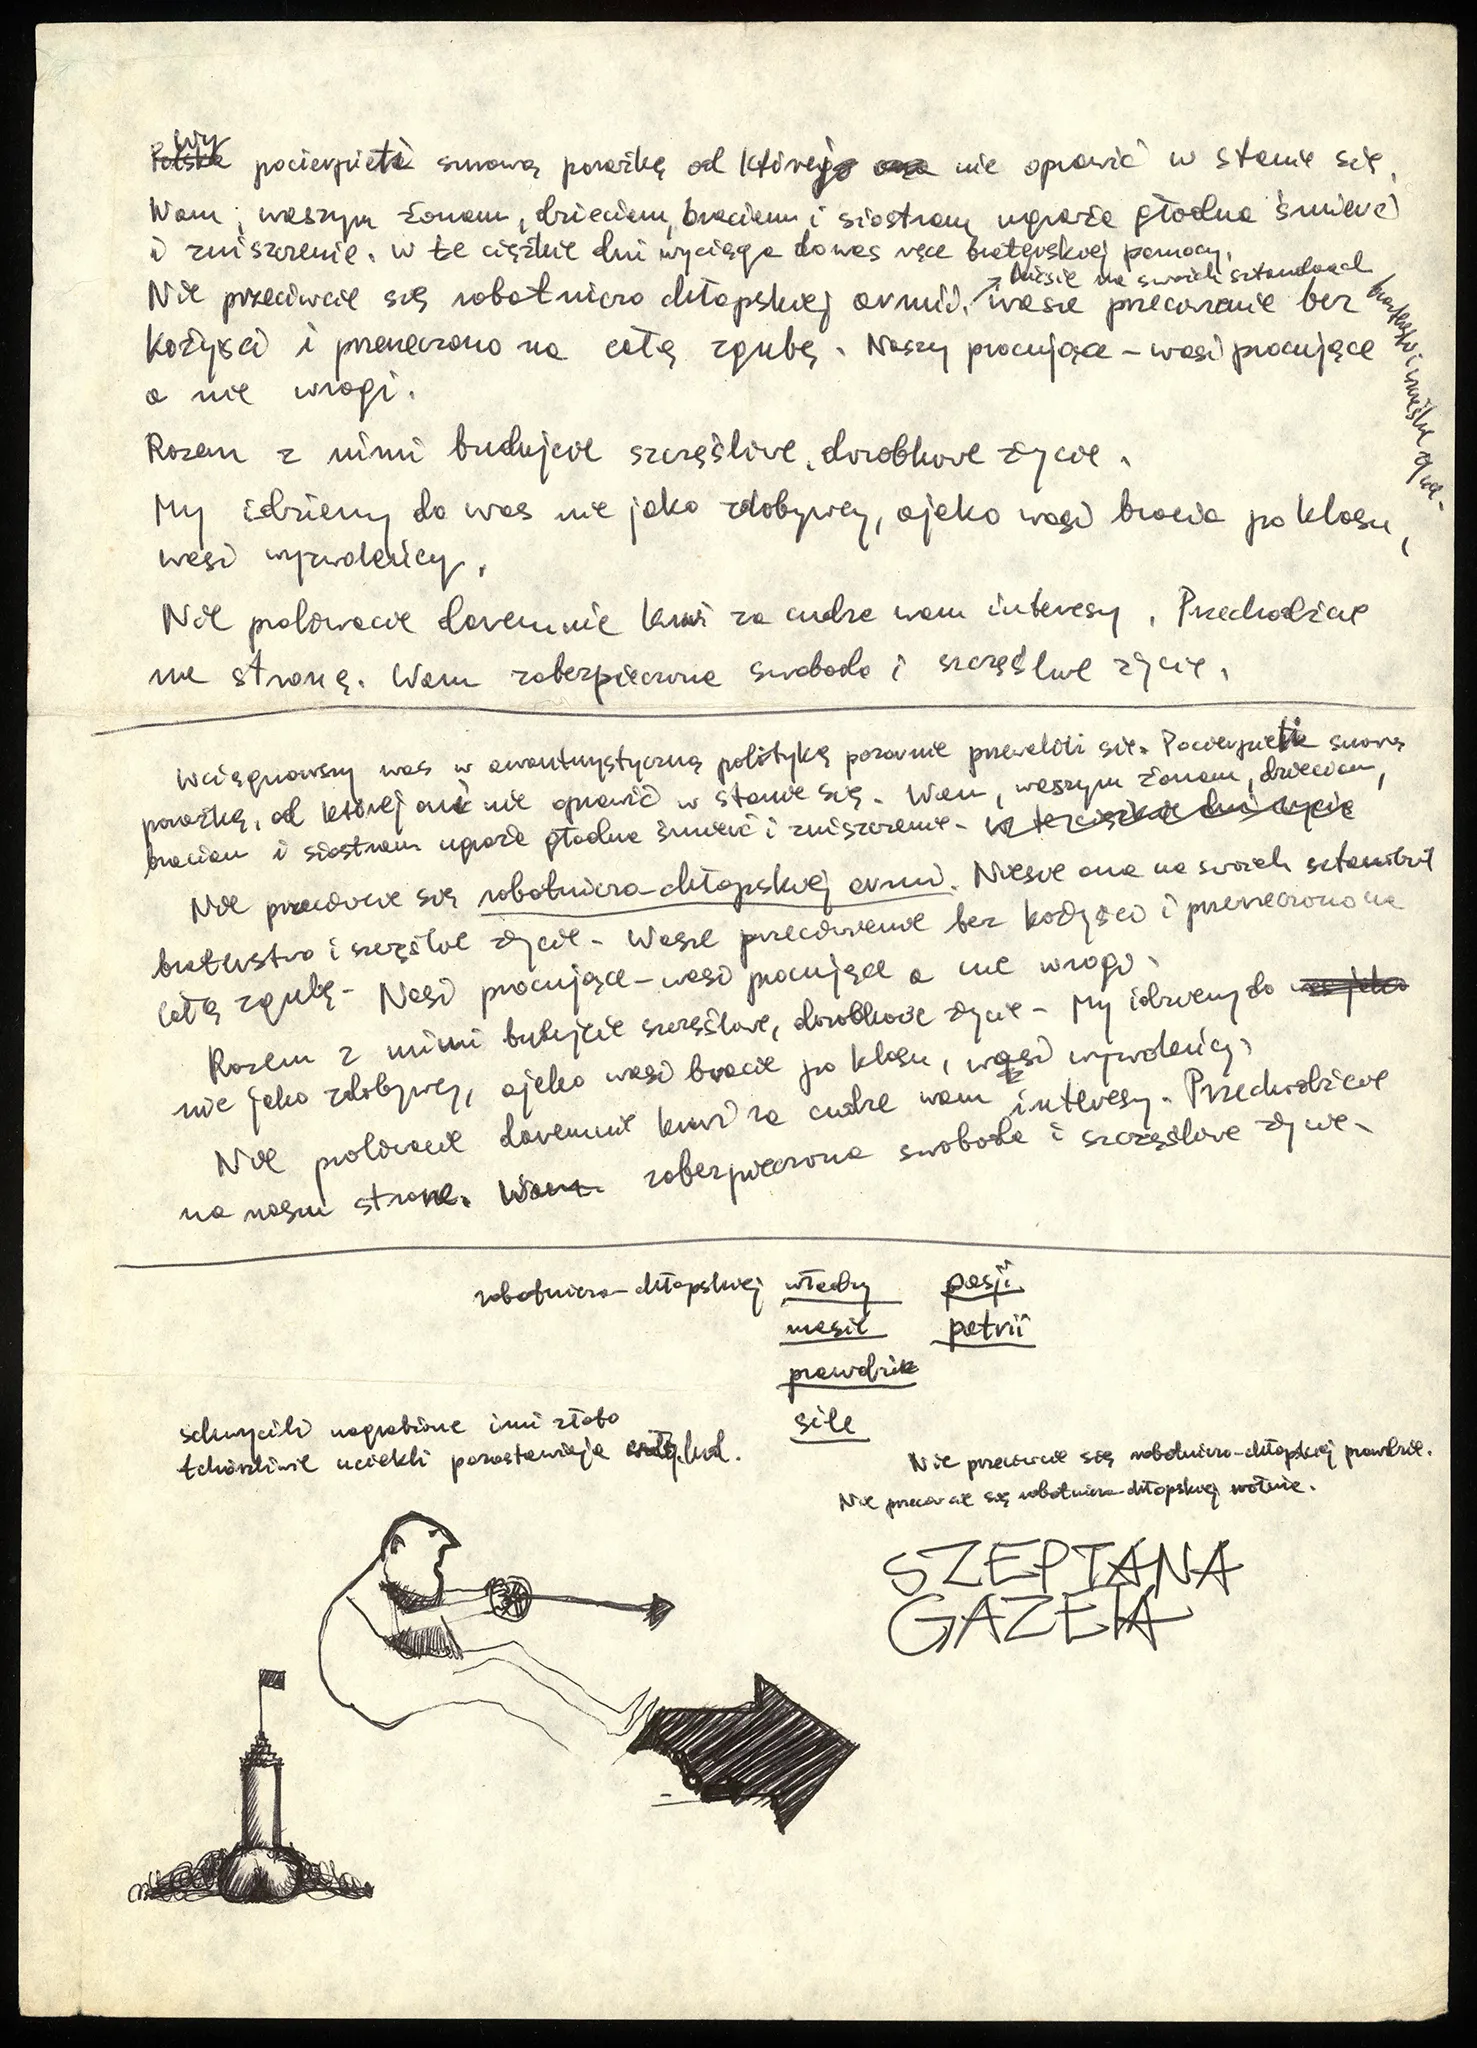 Wy
Polska pocierpieli surową porażkę od której ona nie oprawić w stanie się.
Wam, waszym żonam, dzieciam, braciam i siostram ugraża głodna śmierć
i zniszczenie. W te ciężkie dni wyciąga do was ręce braterskiej pomocy.
Niesie na swoich sztandarach
braterstwo i
Nie przeciwcie się robotniczo chłopskiej armii. wasze przeciwienie bez
kożyści i przeneczono na całą zgubę. Naszy pracujące – wasi pracujące
a nie wrogi.
Razem z nimi budujcie szczęśliwe, dorobkowe życie.
My idziemy do was nie jako zdobywcy, ajako wasi bracia po klasu,
wasi wyzwoleńcy.
Nie proliwacie daremnie krwi za cudze wam interesy. Przechodźcie
na stronę. Wam zabezpieczona swoboda i szczęśliwe życie.
Wciągnąwszy was w awanturystyczną politykę pozornie przewalili się. Pocierpieli surową
porażkę, od której oni nie oprawić w stanie się. Wam, waszym żonam, dzieciam,
braciam i siostram ugraża głodna śmierć i zniszczenie. W te ciężkie dni
Nie przeciwcie się robotniczo-chłopskiej armii. Niesie ona na swoich
braterstwo i szczęśliwe życie. Wasze przeciwienie bez kożyści i przeneczono na
całą zgubę. Nasi pracujące – wasi pracujące a nie wrogi.
Razem z nimi budujcie szczęśliwe, dorobkowe życie. My idziemy do was jako
nie jako zdobywcy, ajako wasi bracie po klasu, wasi wyzwoleńcy.
Nie proliwacie daremnie krwi za cudze wam interesy. Przechodźcie
na naszu strone. Wam zabezpieczona swoboda i szczęśliwe życie.
robotniczo-chłopskiej władzy pasji
masie patrii
prawdzie
sile
schwycili nagrabione imi złoto
tchórzliwie uciekli pozostawiaja lud.
Nie przeciwcie się robotniczo-chłopskiej prawdzie.
Nie przeciwcie się robotniczo-chłopskiej wołnie.
SZEPTANA
GAZETA